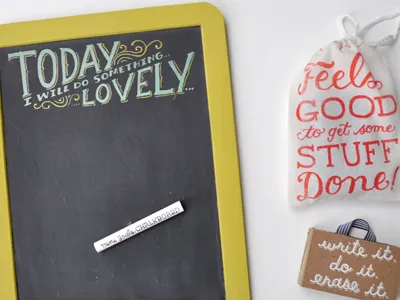 TODAY
I WILL DO SOMETHING...
LOVELY...
CHALKBOARD
Feels
GOOD
to get some
STUFF
Done!
write it.
do it.
erase it.